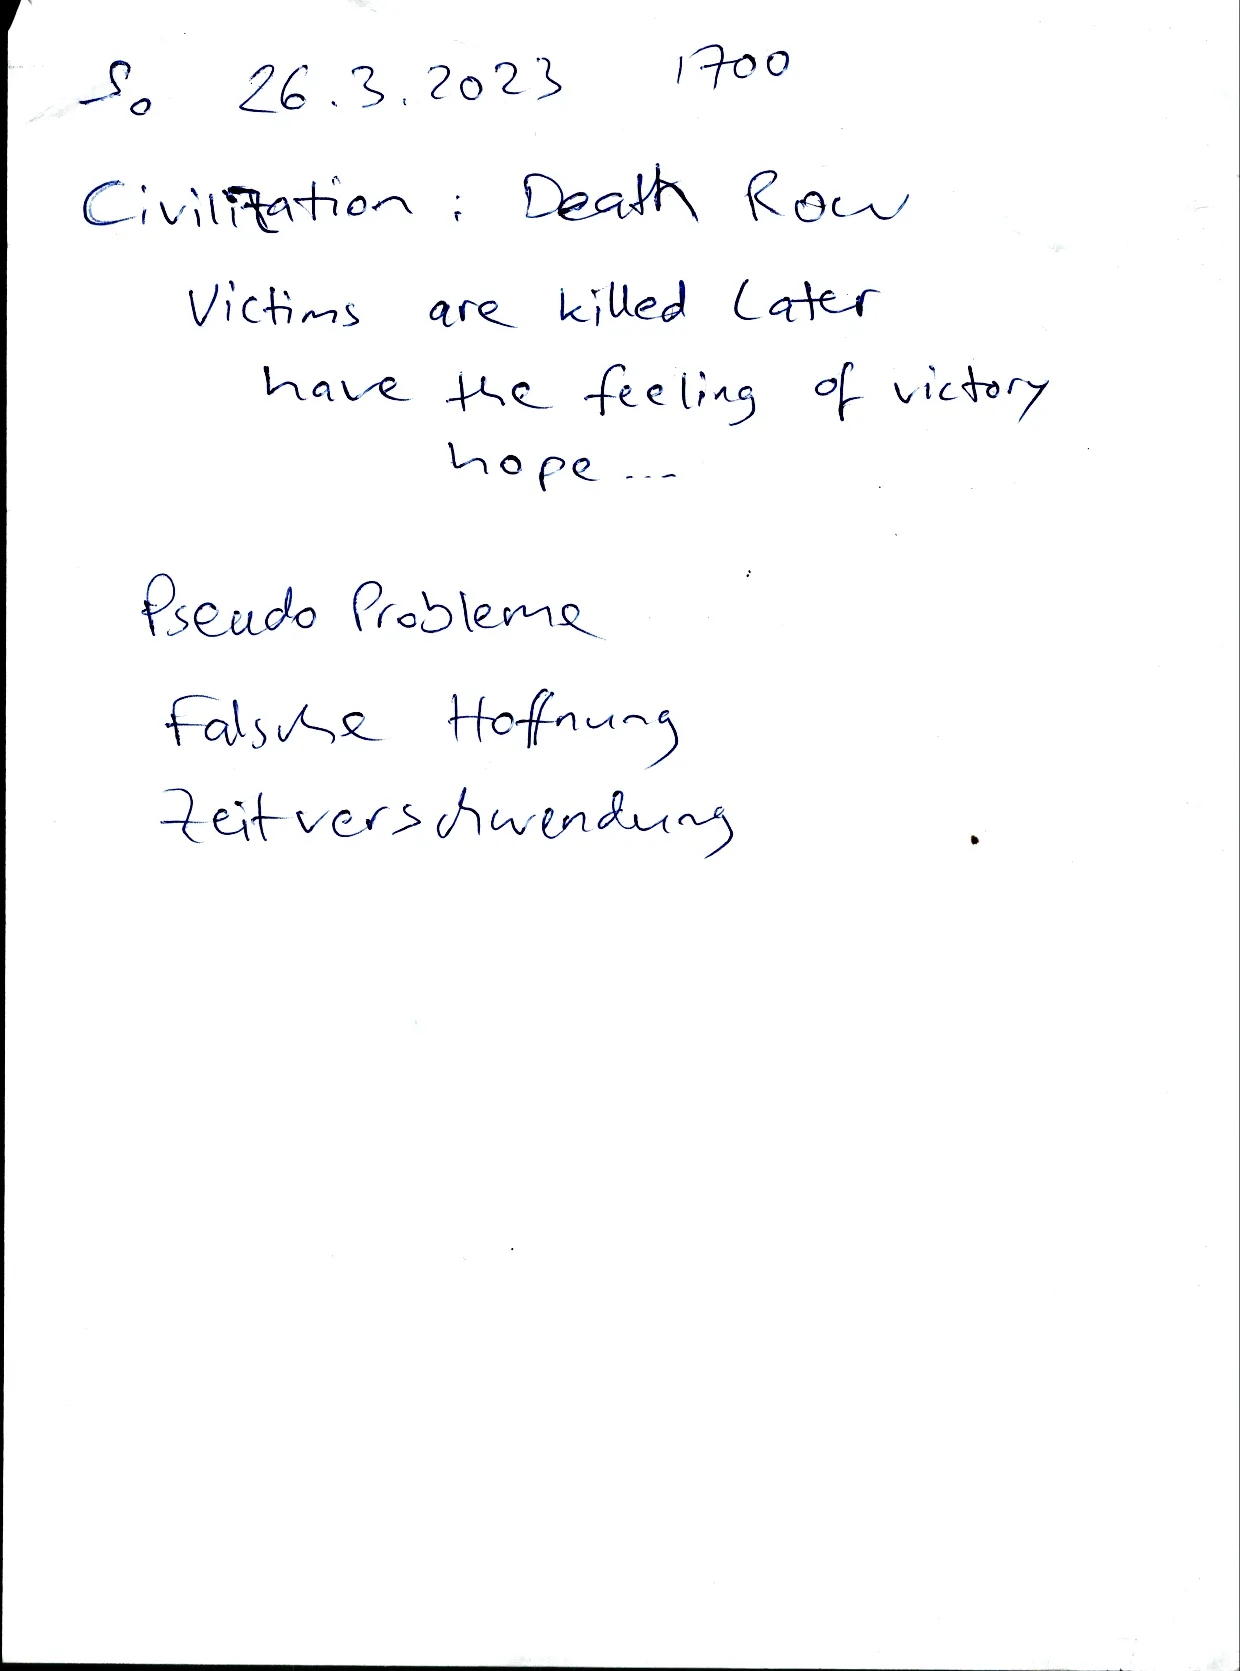 So 26.3.2023 1700
Civilization : Death Row
Victims are killed later
have the feeling of victory
hope ...
Pseudo Probleme
Falsche Hoffnung
Zeitverschwendung